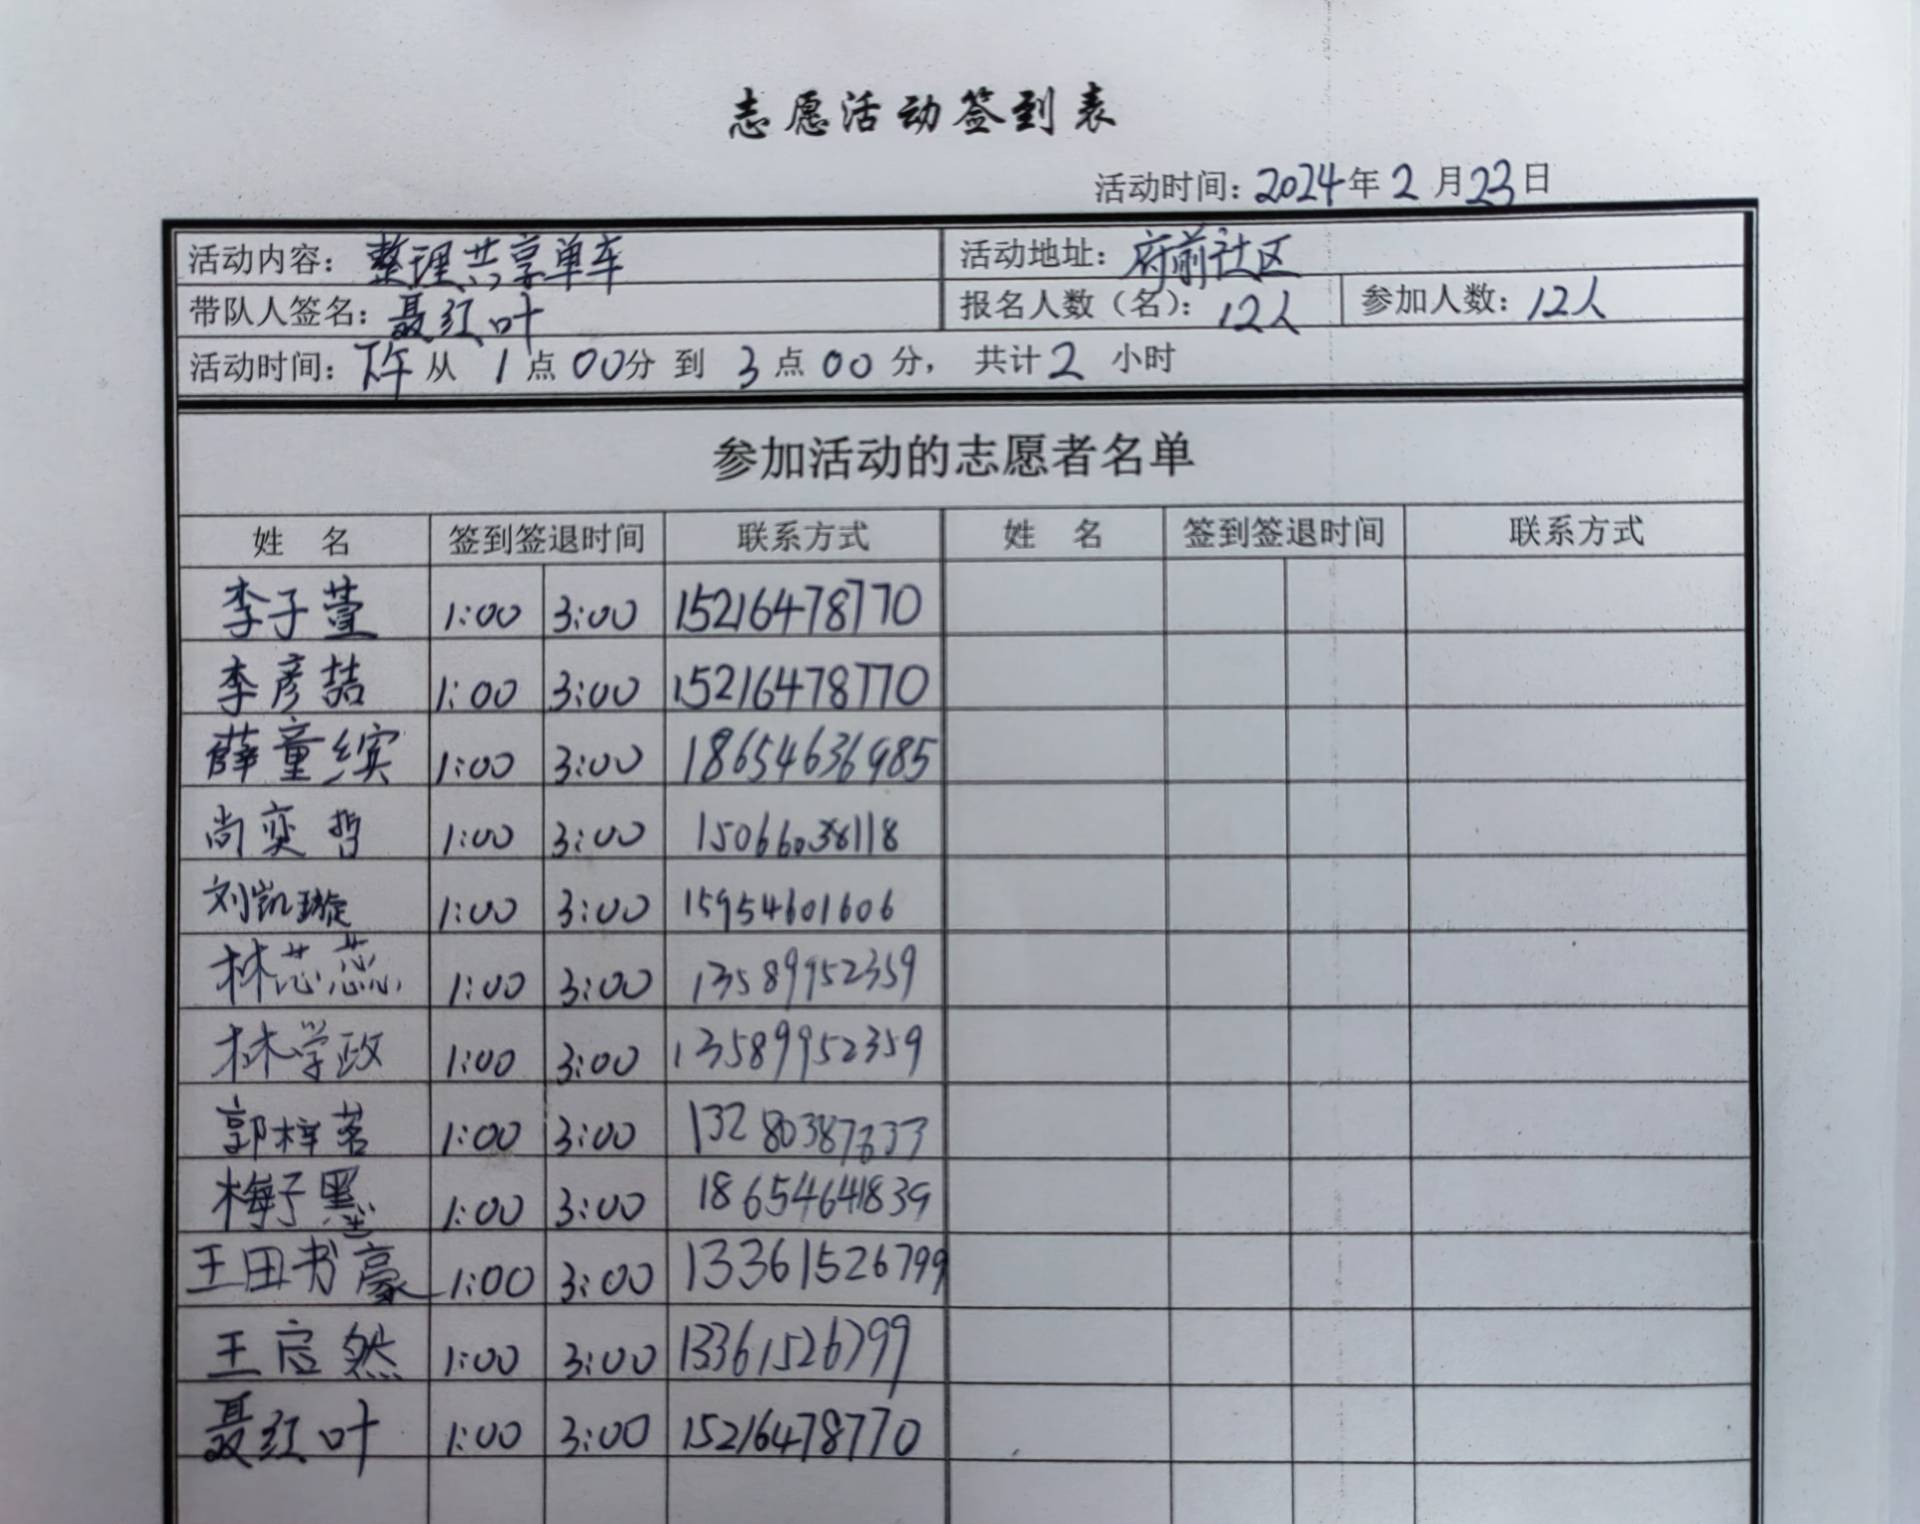 志愿活动签到表
活动时间：2024年2月23日
活动内容：整理共享单车 活动地址：府前社区
带队人签名：聂红叶 报名人数（名）：12人 参加人数：12人
活动时间：下午从1点00分到3点00分，共计2小时
参加活动的志愿者名单
姓名 签到签退时间 联系方式 姓名 签到签退时间 联系方式
李子萱 1:00 3:00 15216478770
李彦喆 1:00 3:00 15216478770
薛童缤 1:00 3:00 18654636985
尚奕哲 1:00 3:00 15066038118
刘凯璇 1:00 3:00 15954601606
林芯蕊 1:00 3:00 13589952359
林学政 1:00 3:00 13589952359
郭梓茗 1:00 3:00
梅子墨 1:00 3:00 18654641839
王田书豪 1:00 3:00 13361526799
王启然 1:00 3:00 13361526799
聂红叶 1:00 3:00 15216478770